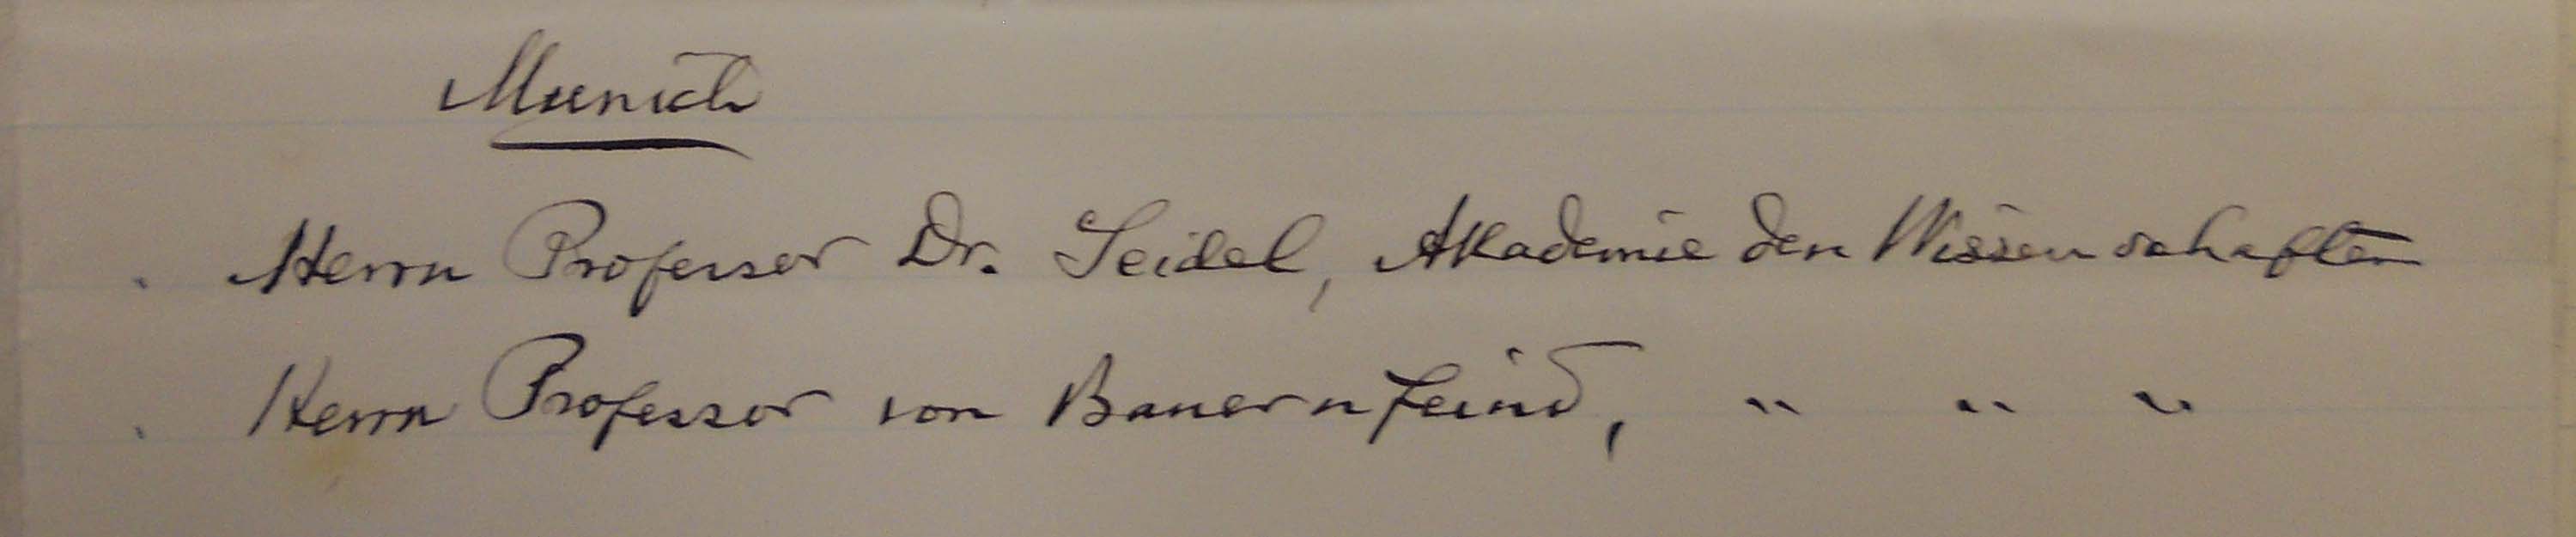 Munich
Herrn Professor Dr. Seidel, Akademie der Wissenschaften
Herrn Professor von Bauernfeind, " " "